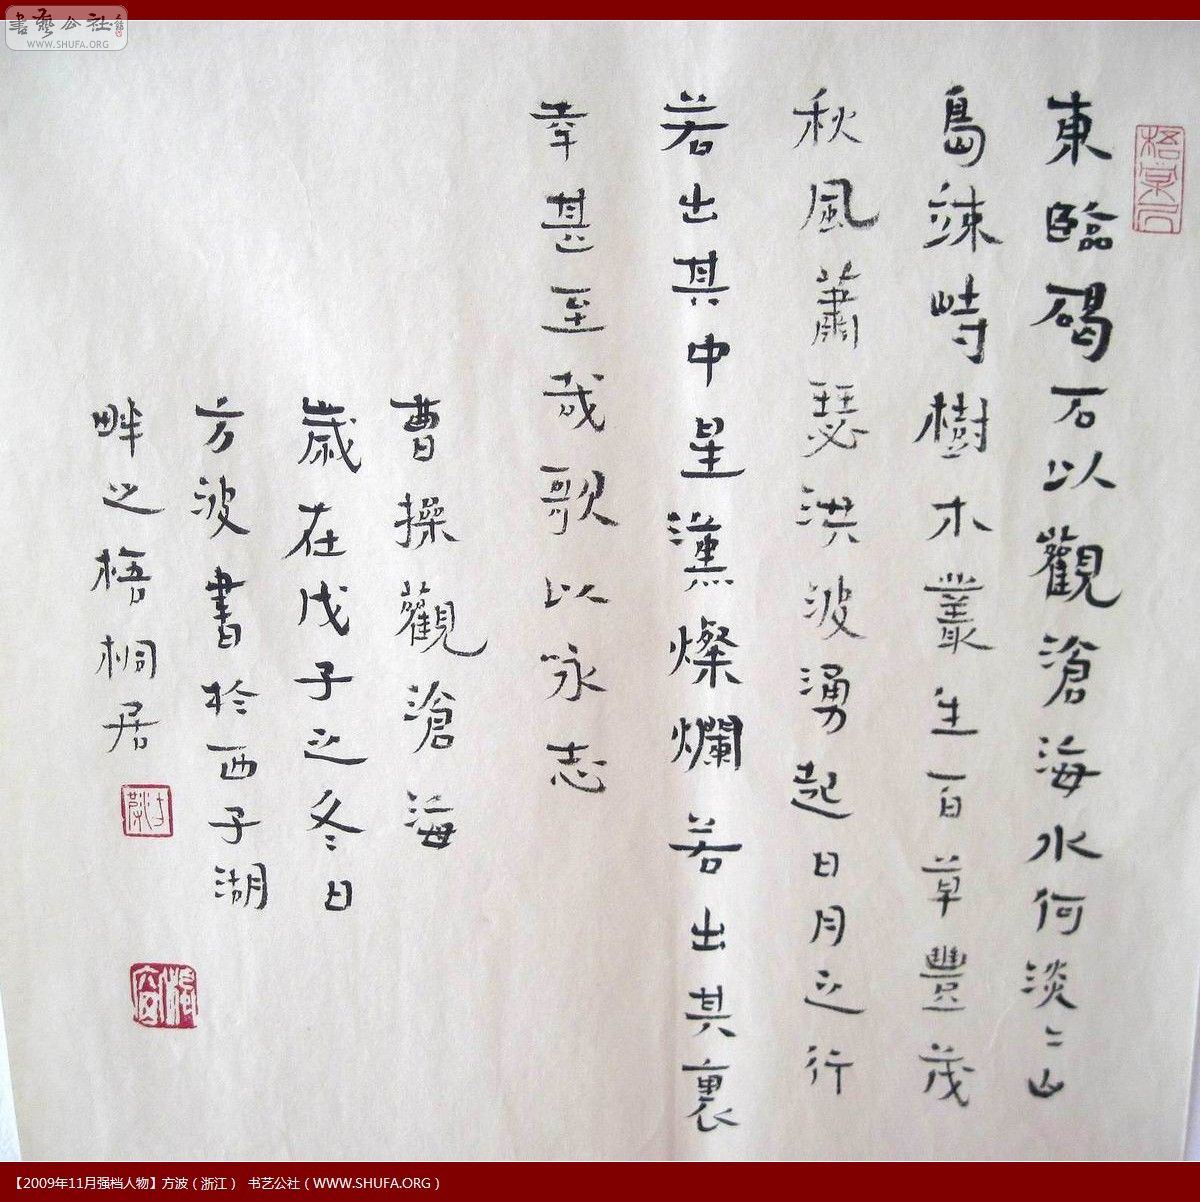 書藝公社
WWW.SHUFA.ORG
東臨碣石以觀滄海水何淡〻山
島竦峙樹木叢生百草豐茂
秋風蕭瑟洪波湧起日月之行
若出其中星漢燦爛若出其裏
幸甚至哉歌以咏志
曹操觀滄海
歲在戊子之冬日
方波書於西子湖
畔之梧桐居
【2009年11月强档人物】方波（浙江） 书艺公社（WWW.SHUFA.ORG）